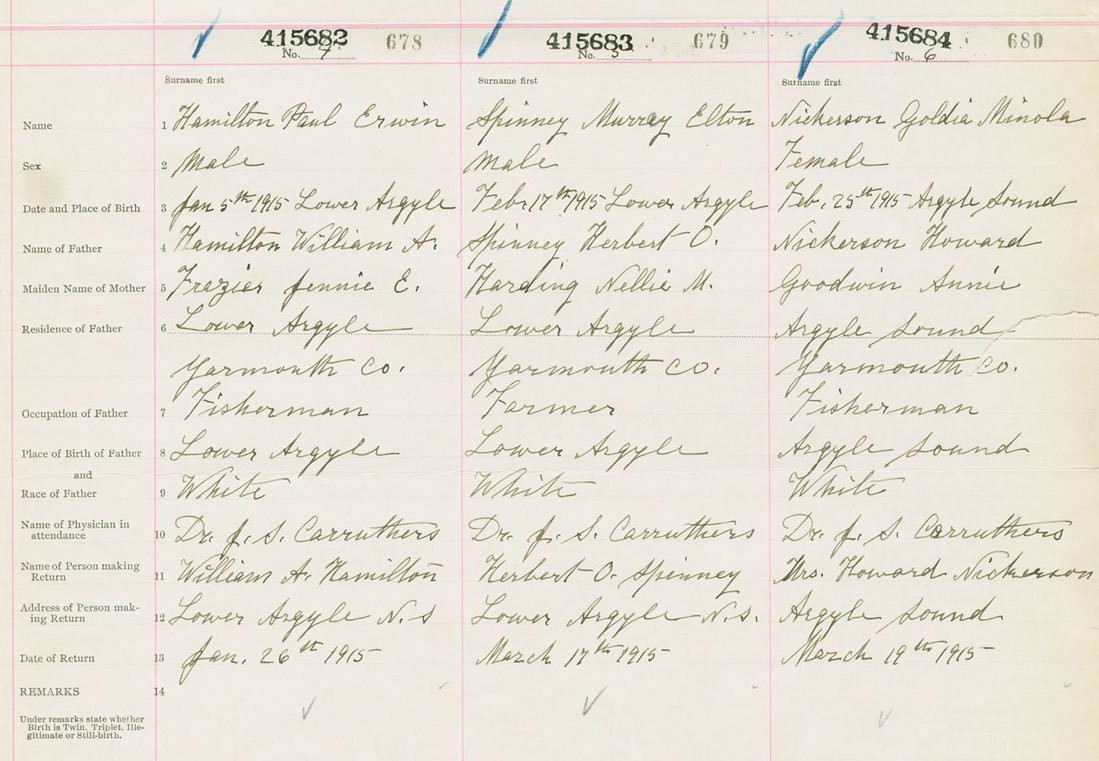 415682 678 415683 679 415684 680
No. 7 No. 5 No. 6
Surname first Surname first Surname first
Name 1 Hamilton Paul Erwin Spinney Murray Elton Nickerson Goldia Minola
Sex 2 Male Male Female
Date and Place of Birth 3 Jan 5th 1915 Lower Argyle Feb. 17th 1915 Lower Argyle Feb. 25th 1915 Argyle Sound
Name of Father 4 Hamilton William A. Spinney Herbert O. Nickerson Howard
Maiden Name of Mother 5 Frazier Jennie E. Harding Nellie M. Goodwin Annie
Residence of Father 6 Lower Argyle Lower Argyle Argyle Sound
Yarmouth Co. Yarmouth Co. Yarmouth Co.
Occupation of Father 7 Fisherman Farmer Fisherman
Place of Birth of Father 8 Lower Argyle Lower Argyle Argyle Sound
and
Race of Father 9 White White White
Name of Physician in
attendance 10 Dr. J. S. Carruthers Dr. J. S. Carruthers Dr. J. S. Carruthers
Name of Person making
Return 11 William A. Hamilton Herbert O. Spinney Mrs. Howard Nickerson
Address of Person mak-
ing Return 12 Lower Argyle N.S Lower Argyle N.S. Argyle Sound
Date of Return 13 Jan. 26th 1915 March 17th 1915 March 19th 1915
REMARKS 14
Under remarks state whether
Birth is Twin, Triplet, Ille-
gitimate or Still-birth.